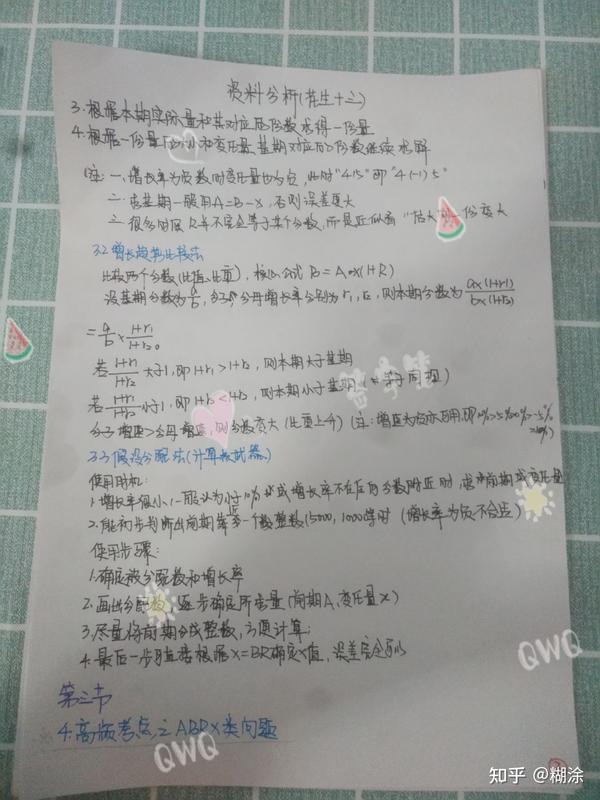 资料分析(花生十三)
3.根据本期实际量和其对应的份数求得一份量
4.根据一份量的大小和变化量、基期对应的份数继续求解
(注: 一、增长率为负数时变化量也为负, 此时"415"即"4(-1)5"
二. 求基期一般用A=B-X, 否则误差更大
三. 很多时候R并不完全等于某个分数, 而是近似而
3.2增长趋势比较法
比较两个分数(比值、比重), 核心公式 B=A×(1+R)
设基期分数为a/b, 分子、分母增长率分别为r₁, r₂, 则本期分数为 a×(1+r₁)/b×(1+r₂)
=a/b×(1+r₁)/(1+r₂)。
若(1+r₁)/(1+r₂)大于1, 即1+r₁>1+r₂, 则本期大于基期
若(1+r₁)/(1+r₂)小于1, 即1+r₁<1+r₂, 则本期小于基期 (等于同理)
分子增速>分母增速, 则分数变大(比重上升) (注: 增速为负亦适用, 即
3.3假设分配法(计算核武器)
使用时机:
1.增长率很小(一般认为小于10%)或增长率不在百分数附近时, 求 前期或变化量
2.能初步判断出前期靠近一个数整数(5000, 1000等时 (增长率为负不合适)
使用步骤:
1.确定被分配数和增长率
2.画出分配树, 逐步确定所求量(前期A、变化量x)
3.尽量将前期分成整数, 方便计算;
4.最后一步可直接根据x=BR确定x值, 误差完全可以
第三节
4.高频考点之ABRX类问题
QWQ
QWQ
知乎 @糊涂